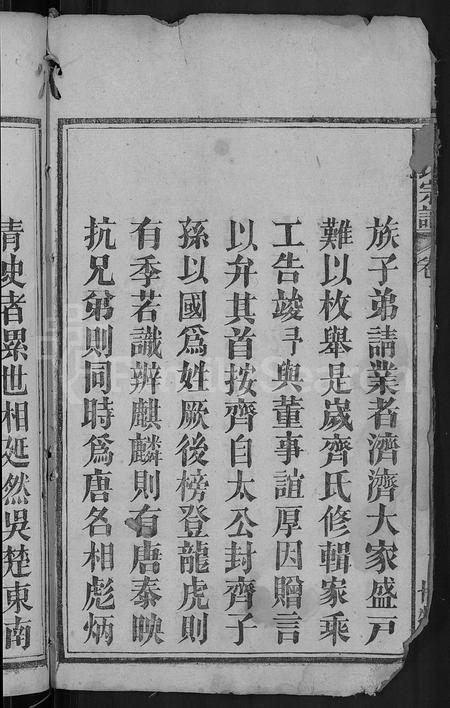 氏宗譜
卷
族子弟請業者濟濟大家盛戸
難以枚舉是歲齊氏修輯家乘
工告竣予與董事誼厚因贈言
以弁其首按齊自太公封齊子
孫以國爲姓厥後榜登龍虎則
有季若識辨麒麟則有唐泰映
抗兄弟則同時爲唐名相彪炳
青史者累世相延然吳楚東南
FamilySearch